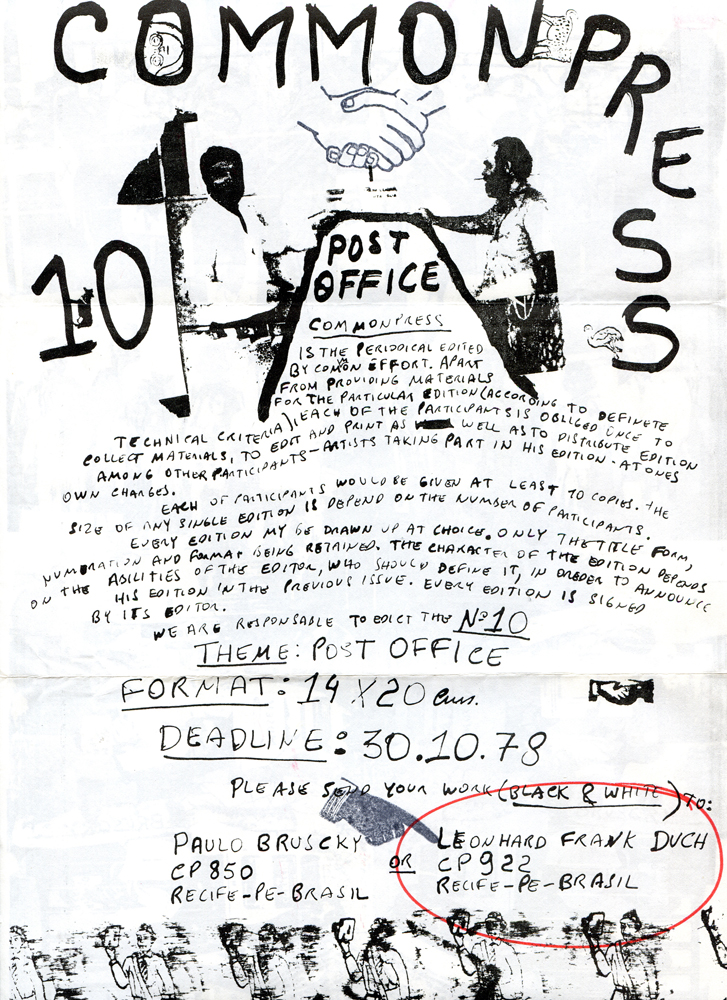 COMMONPRESS
10
POST
OFFICE
COMMONPRESS
IS THE PERIODICAL EDITED
BY COMON EFFORT. APART
FROM PROVIDING MATERIALS
FOR THE PARTICULAR EDITION (ACCORDING TO DEFINETE
TECHNICAL CRITERIA), EACH OF THE PARTICIPANTS IS OBLIGED ONCE TO
COLLECT MATERIALS, TO EDIT AND PRINT AS WELL AS TO DISTRIBUTE EDITION
AMONG OTHER PARTICIPANTS-ARTISTS TAKING PART IN HIS EDITION. AT ONES
OWN CHARGES.
EACH OF PARTICIPANTS WOULD BE GIVEN AT LEAST 10 COPIES. THE
SIZE OF ANY SINGLE EDITION IS DEPEND ON THE NUMBER OF PARTICIPANTS.
EVERY EDITION MY BE DRAWN UP AT CHOICE. ONLY THE TITLE FORM,
NUMERATION AND FORMAT BEING RETAINED. THE CHARACTER OF THE EDITION DEPENDS
ON THE ABILITIES OF THE EDITOR, WHO SHOULD DEFINE IT, IN OREDER TO ANNOUNCE
HIS EDITION IN THE PREVIOUS ISSUE. EVERY EDITION IS SIGNED
BY ITS EDITOR.
WE ARE RESPONSABLE TO EDICT THE Nº10
THEME: POST OFFICE
FORMAT: 14 X 20 cms.
DEADLINE: 30.10.78
PLEASE SEND YOUR WORK (BLACK & WHITE) TO:
PAULO BRUSCKY OR LEONHARD FRANK DUCH
CP 850 CP 922
RECIFE-PE-BRASIL RECIFE-PE-BRASIL